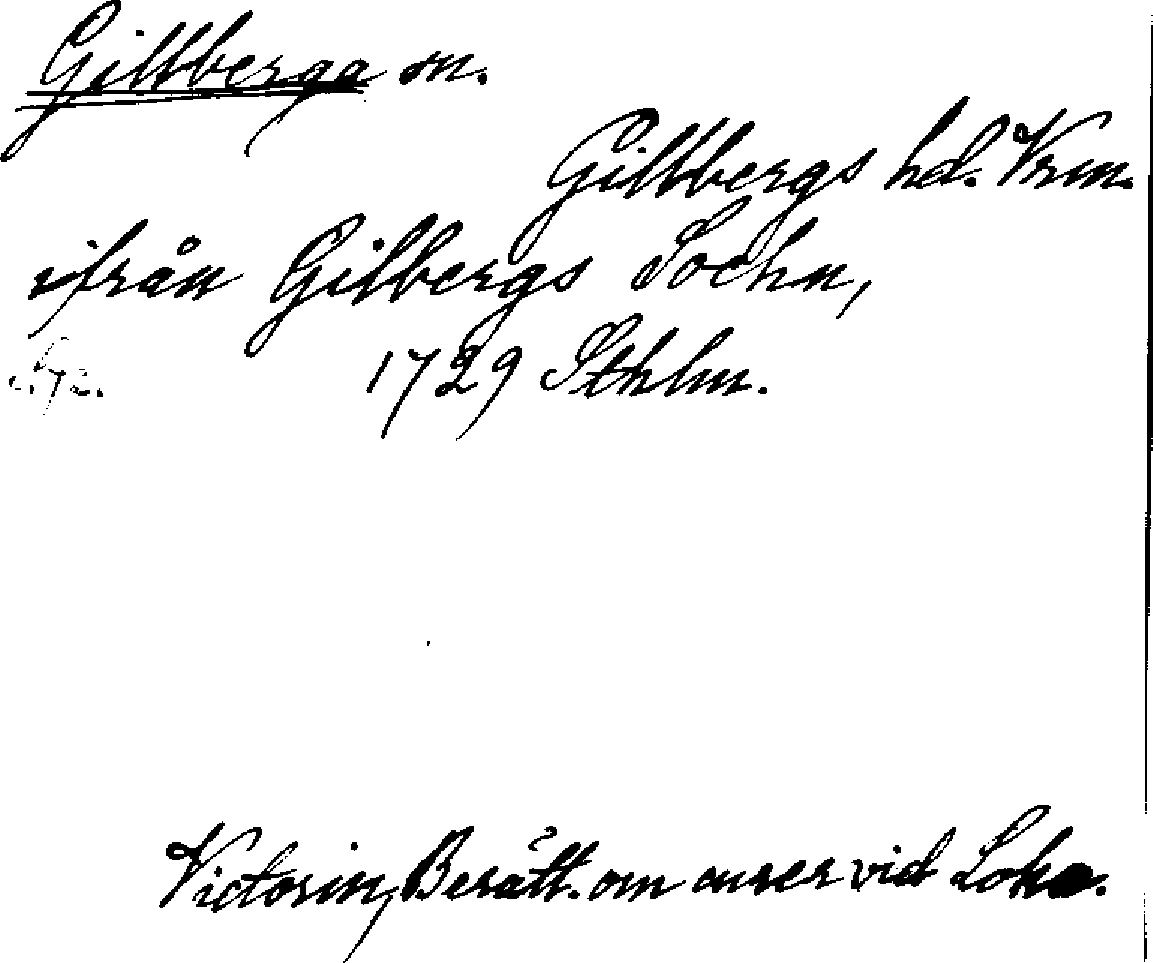 Gillberga sn.
Gillbergs hd. Vrm.
ifrån Gilbergs Sochn,
1729 Sthlm.
Victorin, Berätt. om curer vid Loka.